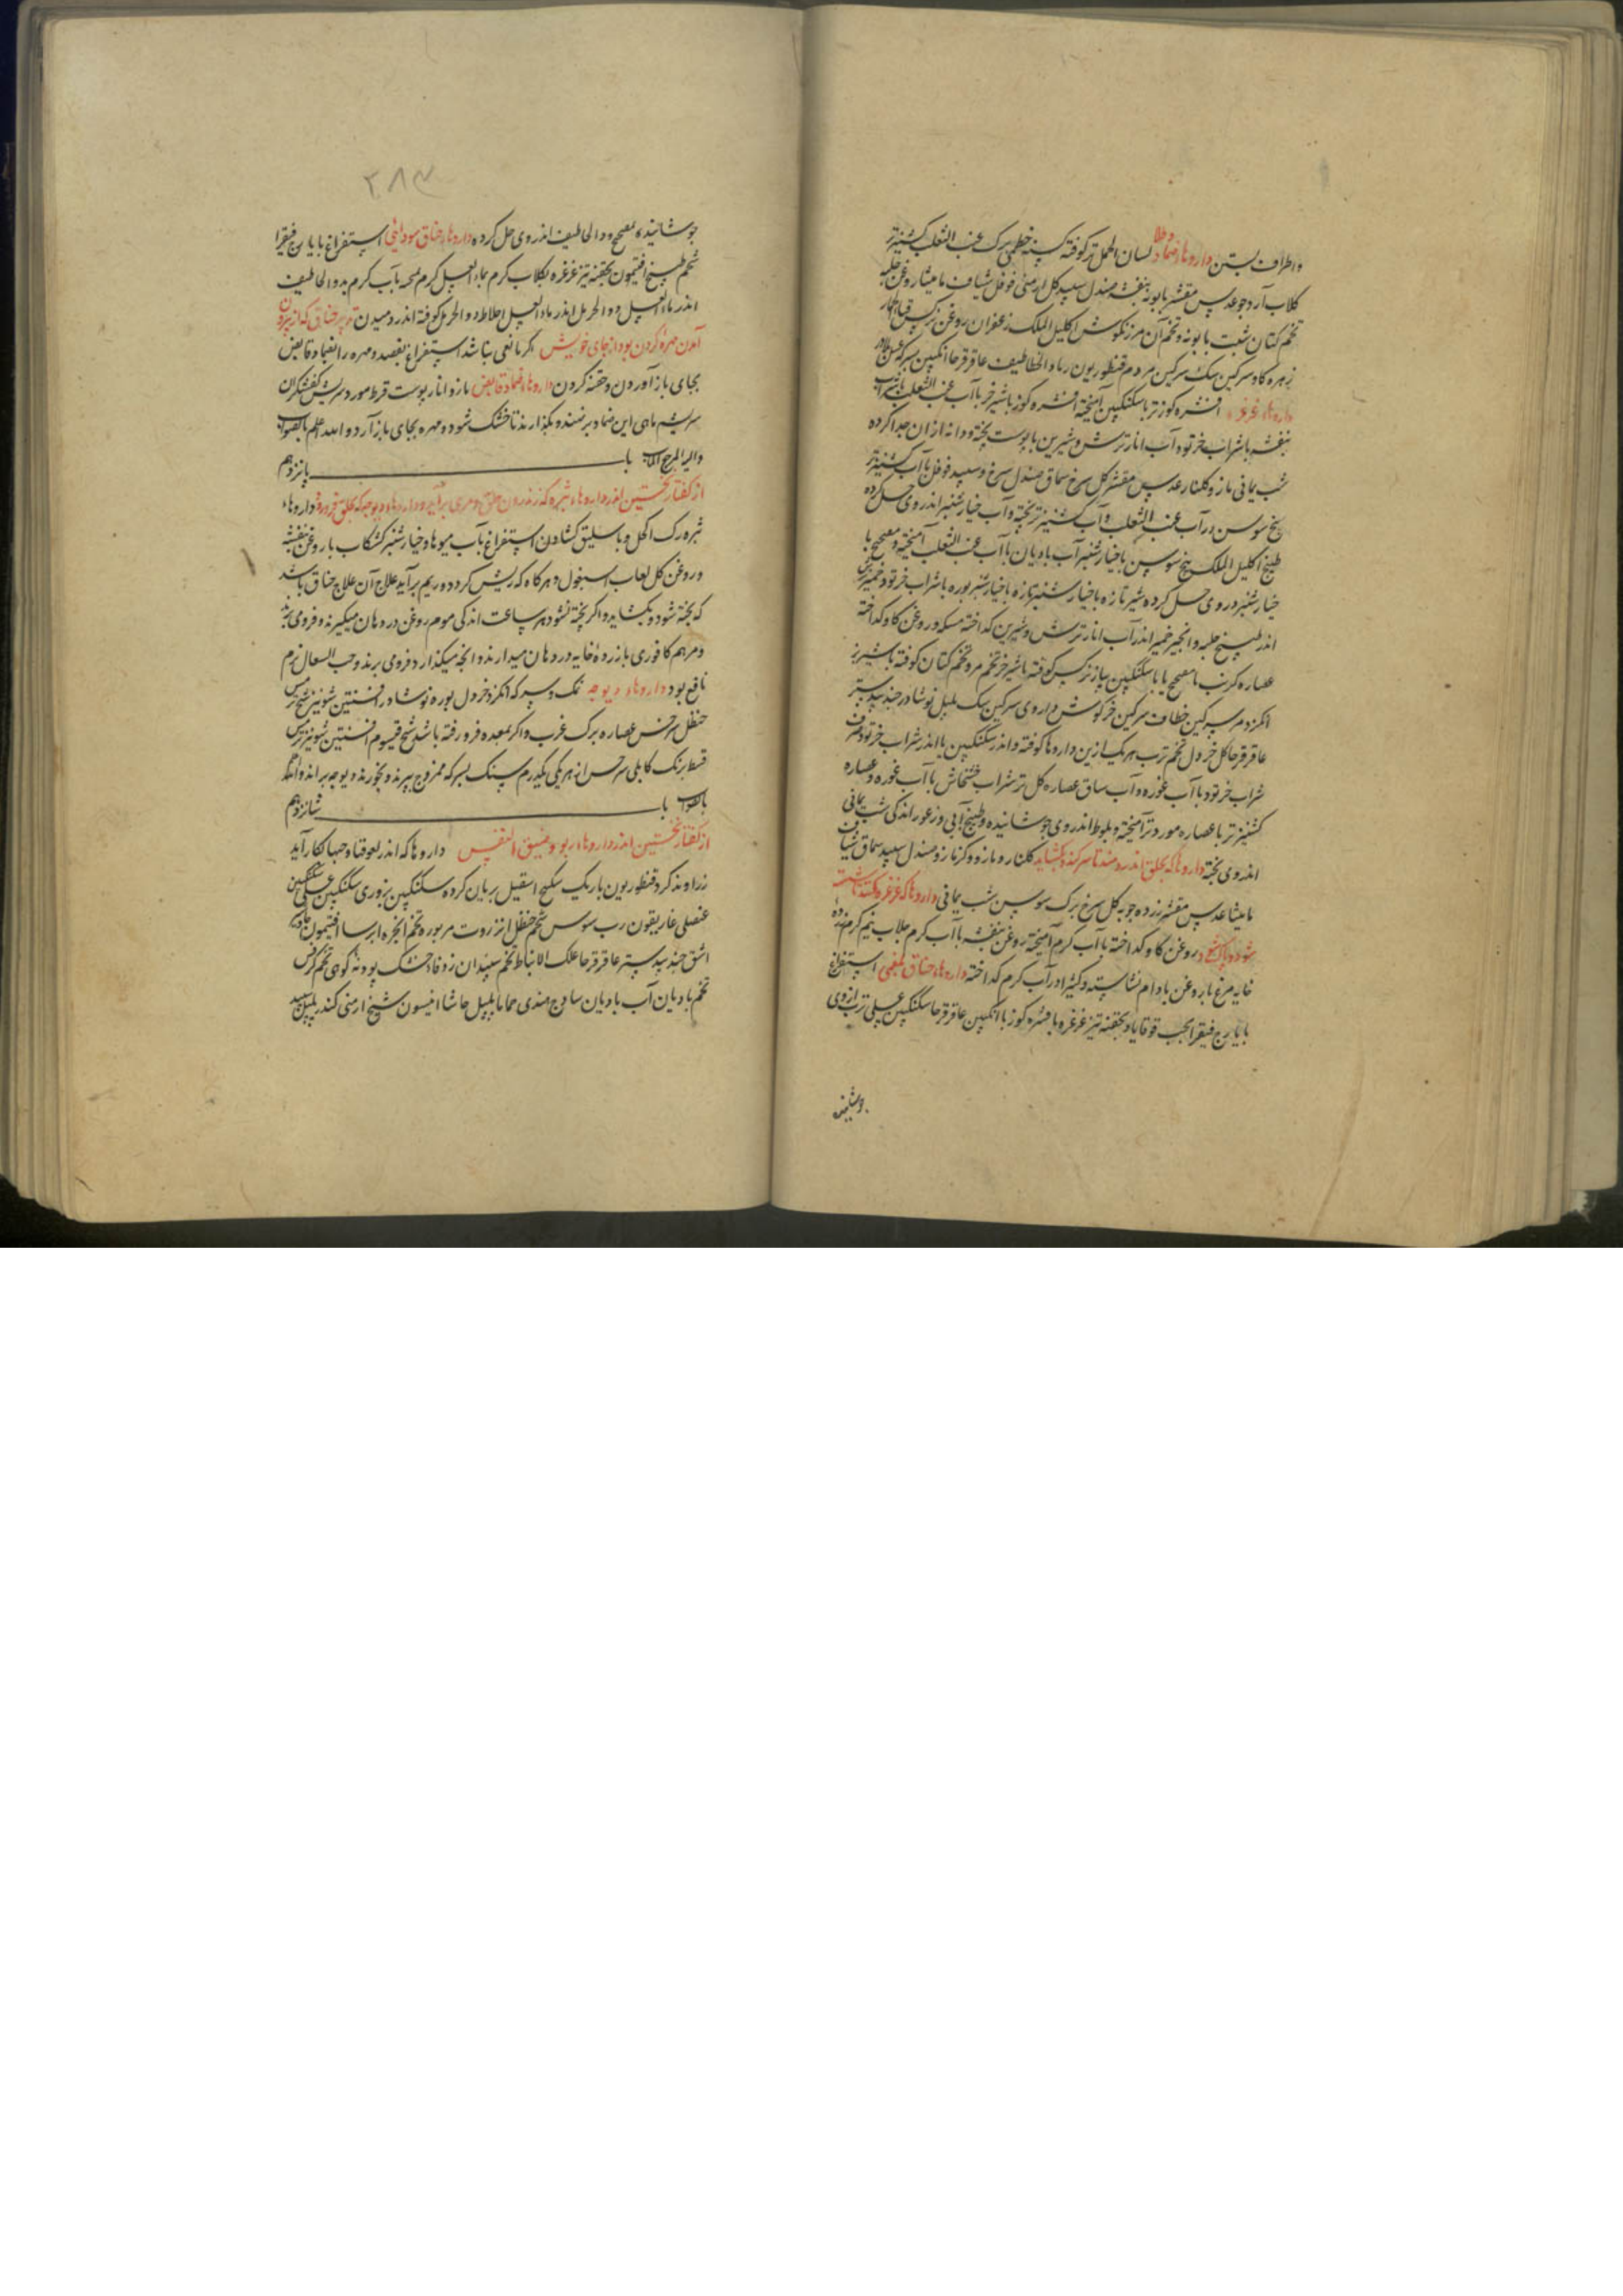 واطراف بستن داروها ضماد وطلا لسان الحمل تر کوفته کسنه خطمی برک عنب الثعلب کشنیز تر
کلاب آرد جو عدس مقشر بابونه بنفشه صندل سپید کل ارمنی فوفل شیاف مامیثا روغن حلبه
تخم کتان شبت بابونه وتخم آن مرزنکوش اکلیل الملک زعفران روغن نرکس قثاء الحمار
زهره کاو سرکین سک سرکین مردم قنطوریون رماد الخطاطیف عاقرقرحا انکبین سرکه عسل
داروهاء غرغره افشره کوز تر با سکنکبین آمیخته افشره کوز با شیر خر با آب عنب الثعلب باشراب
بنفشه با شراب خرتوه آب انار ترش وشیرین با پوست پخته ودانه ازان جدا کرده
شب یمانی مازو کلنار عدس مقشر کل سرخ سماق صندل سرخ وسپید فوفل با آب کشنیز تر
بیخ سوسن در آب عنب الثعلب وآب کشنیز تر پخته وآب خیارشنبر اندر وی حل کرده
طبیخ اکلیل الملک بیخ سوسن با خیارشنبر آب بادیان با آب عنب الثعلب آمیخته و مفحج با
خیارشنبر در وی حل کرده شیر تازه با خیارشنبر تازه با خیارشنبر بوره با شراب خرتود خمیر ترش
اندر طبیخ حلبه وانجیر خمیر اندر آب انار ترش وشیرین کداخته مسکه و روغن کاو کداخته
عصاره کرنب با مفحج یا با سکنکبین پیاز نرکس کوفته با شیر خر تخم مرو تخم کتان کوفته با شیر بز
انکزد مر سرکین خطاف سرکین خرکوش داروی سرکین سک پلپل نوشادر جندبیدستر
عاقرقرحا کل خردل تخم ترب هر یک ازین داروها کوفته واندر سکنکبین یا اندر شراب خرتود
شراب خرتود با آب غوره وآب سماق عصاره کل تر شراب خشخاش با آب غوره وعصاره
کشنیز تر با عصاره مورد تر آمیخته و بلوط اندر وی جوشانیده و طبیخ آبی و زعرور اندکی شب یمانی
اندر وی پخته داروها که بحلق اندر دمند تا سر کند وبکشاید کلنار و مازو و کزمازو و صندل سپید سماق شیاف
مامیثا عدس مقشر زرده جوبه کل سرخ برک سوسن شب یمانی داروها که غرغره کنند تا
شود و پاک روغن کاو کداخته با آب کرم آمیخته روغن بنفشه با آب کرم جلاب نیم کرم زرده
خایه مرغ با روغن بادام نشاسته و کثیرا در آب کرم کداخته داروهاء خناق بلغمی استفراغ
با یارج فیقرا بحب قوقایا وبحقنه تیز غرغره با فشره کوز با انکبین عاقرقرحا سکنکبین عسلی ترب از وی
جوشانیده
۲۸۳
جوشانیده مفحج ودواء الخطاطیف اندر وی حل کرده داروهاء خناق سودائی استفراغ با یارج فیقرا
شحم طبیخ افتیمون بحقنه تیز غرغره بکلاب کرم بماء العسل کرم بآب کرم بدواء الخطاطیف
اندر ماء العسل دواء الحرمل اندر ماء العسل اخلاط دواء الحرمل کوفته اندر دمیدن تدبیر خناق که از بیرون
آمدن مهره کردن بود از جای خویش اکر مانعی نباشد استفراغ بفصد و مهره را بضماد قابض
بجای باز آوردن وحقنه کردن داروهاء ضماد قابض مازو انار پوست قرط مورد سریش کفشکران
سریشم ماهی این ضماد برنهند و بکذارند تا خشک شود و مهره بجای باز آرد والله اعلم بالصواب
والیه المرجع والمآب باب پانزدهم
از کفتار نخستین اندر داروهاء بثره که در اندرون حلق و مری برآید و داروهاء دیوجه که بحلق فرو رود داروهاء
بثره رک اکحل و باسلیق کشادن استفراغ بآب میوها و خیارشنبر کشکاب با روغن بنفشه
و روغن کل لعاب اسبغول و هر کاه که ریش کردد و ریم برآید علاج آن علاج خناق باشد
که پخته شود و بکشاید و اکر پخته نشود هر ساعت اندکی موم روغن در دهان میکیرند و فرو می برند
و مرهم کافوری با زرده خایه در دهان میدارند و انچه میکذارد فرو می برند و حب السعال نرم
نافع بود داروهاء دیوجه نمک و سرکه انکزد خردل بوره نوشادر افسنتین شونیز شیح ترمس
حنظل سرخس عصاره برک غرب و اکر بمعده فرو رفته باشد شیح قیسوم افسنتین شونیز ترمس
قسط برنک کابلی سرخس از هر یکی یکدرم سنک بسرکه ممزوج بپزند و بخورند دیوجه براند والله اعلم
بالصواب باب شانزدهم
از کفتار نخستین اندر داروهاء ربو و ضیق النفس داروها که اندر لعوقها و حبها بکار آید
زراوند کرد قنطوریون باریک سکبینج اسقیل بریان کرده سکنکبین بزوری سکنکبین عسلی سکنکبین
عنصلی غاریقون رب سوس شحم حنظل انزروت مر بوره تخم انجره ایرسا افتیمون جاوشیر
اشق جندبیدستر عاقرقرحا علک الانباط تخم سپندان زوفاء خشک پودنه کوهی تخم کرفس
تخم بادیان آب بادیان سادج هندی حماما پلپل حاشا انیسون شیح ارمنی کندر پلپل سپید